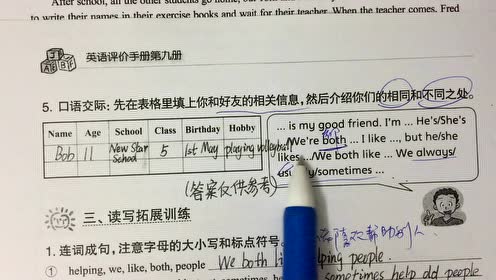 After school, all the other students go home,
to write their names in their exercise books and wait for their teacher. When the teacher comes, Fred
英语评价手册第九册
5. 口语交际:先在表格里填上你和好友的相关信息,然后介绍你们的相同和不同之处。
Name Age School Class Birthday Hobby
Bob 11 New Star School 5 1st May playing volleyball
... is my good friend. I'm ... He's/She's
.../We're both ... I like ..., but he/she
likes .../We both like ... We always/
usually/sometimes ...
(答案仅供参考)
三、读写拓展训练
1. 连词成句,注意字母的大小写和标点符号。
① helping, we, like, both, people We both li helping people.
sometimes help old people